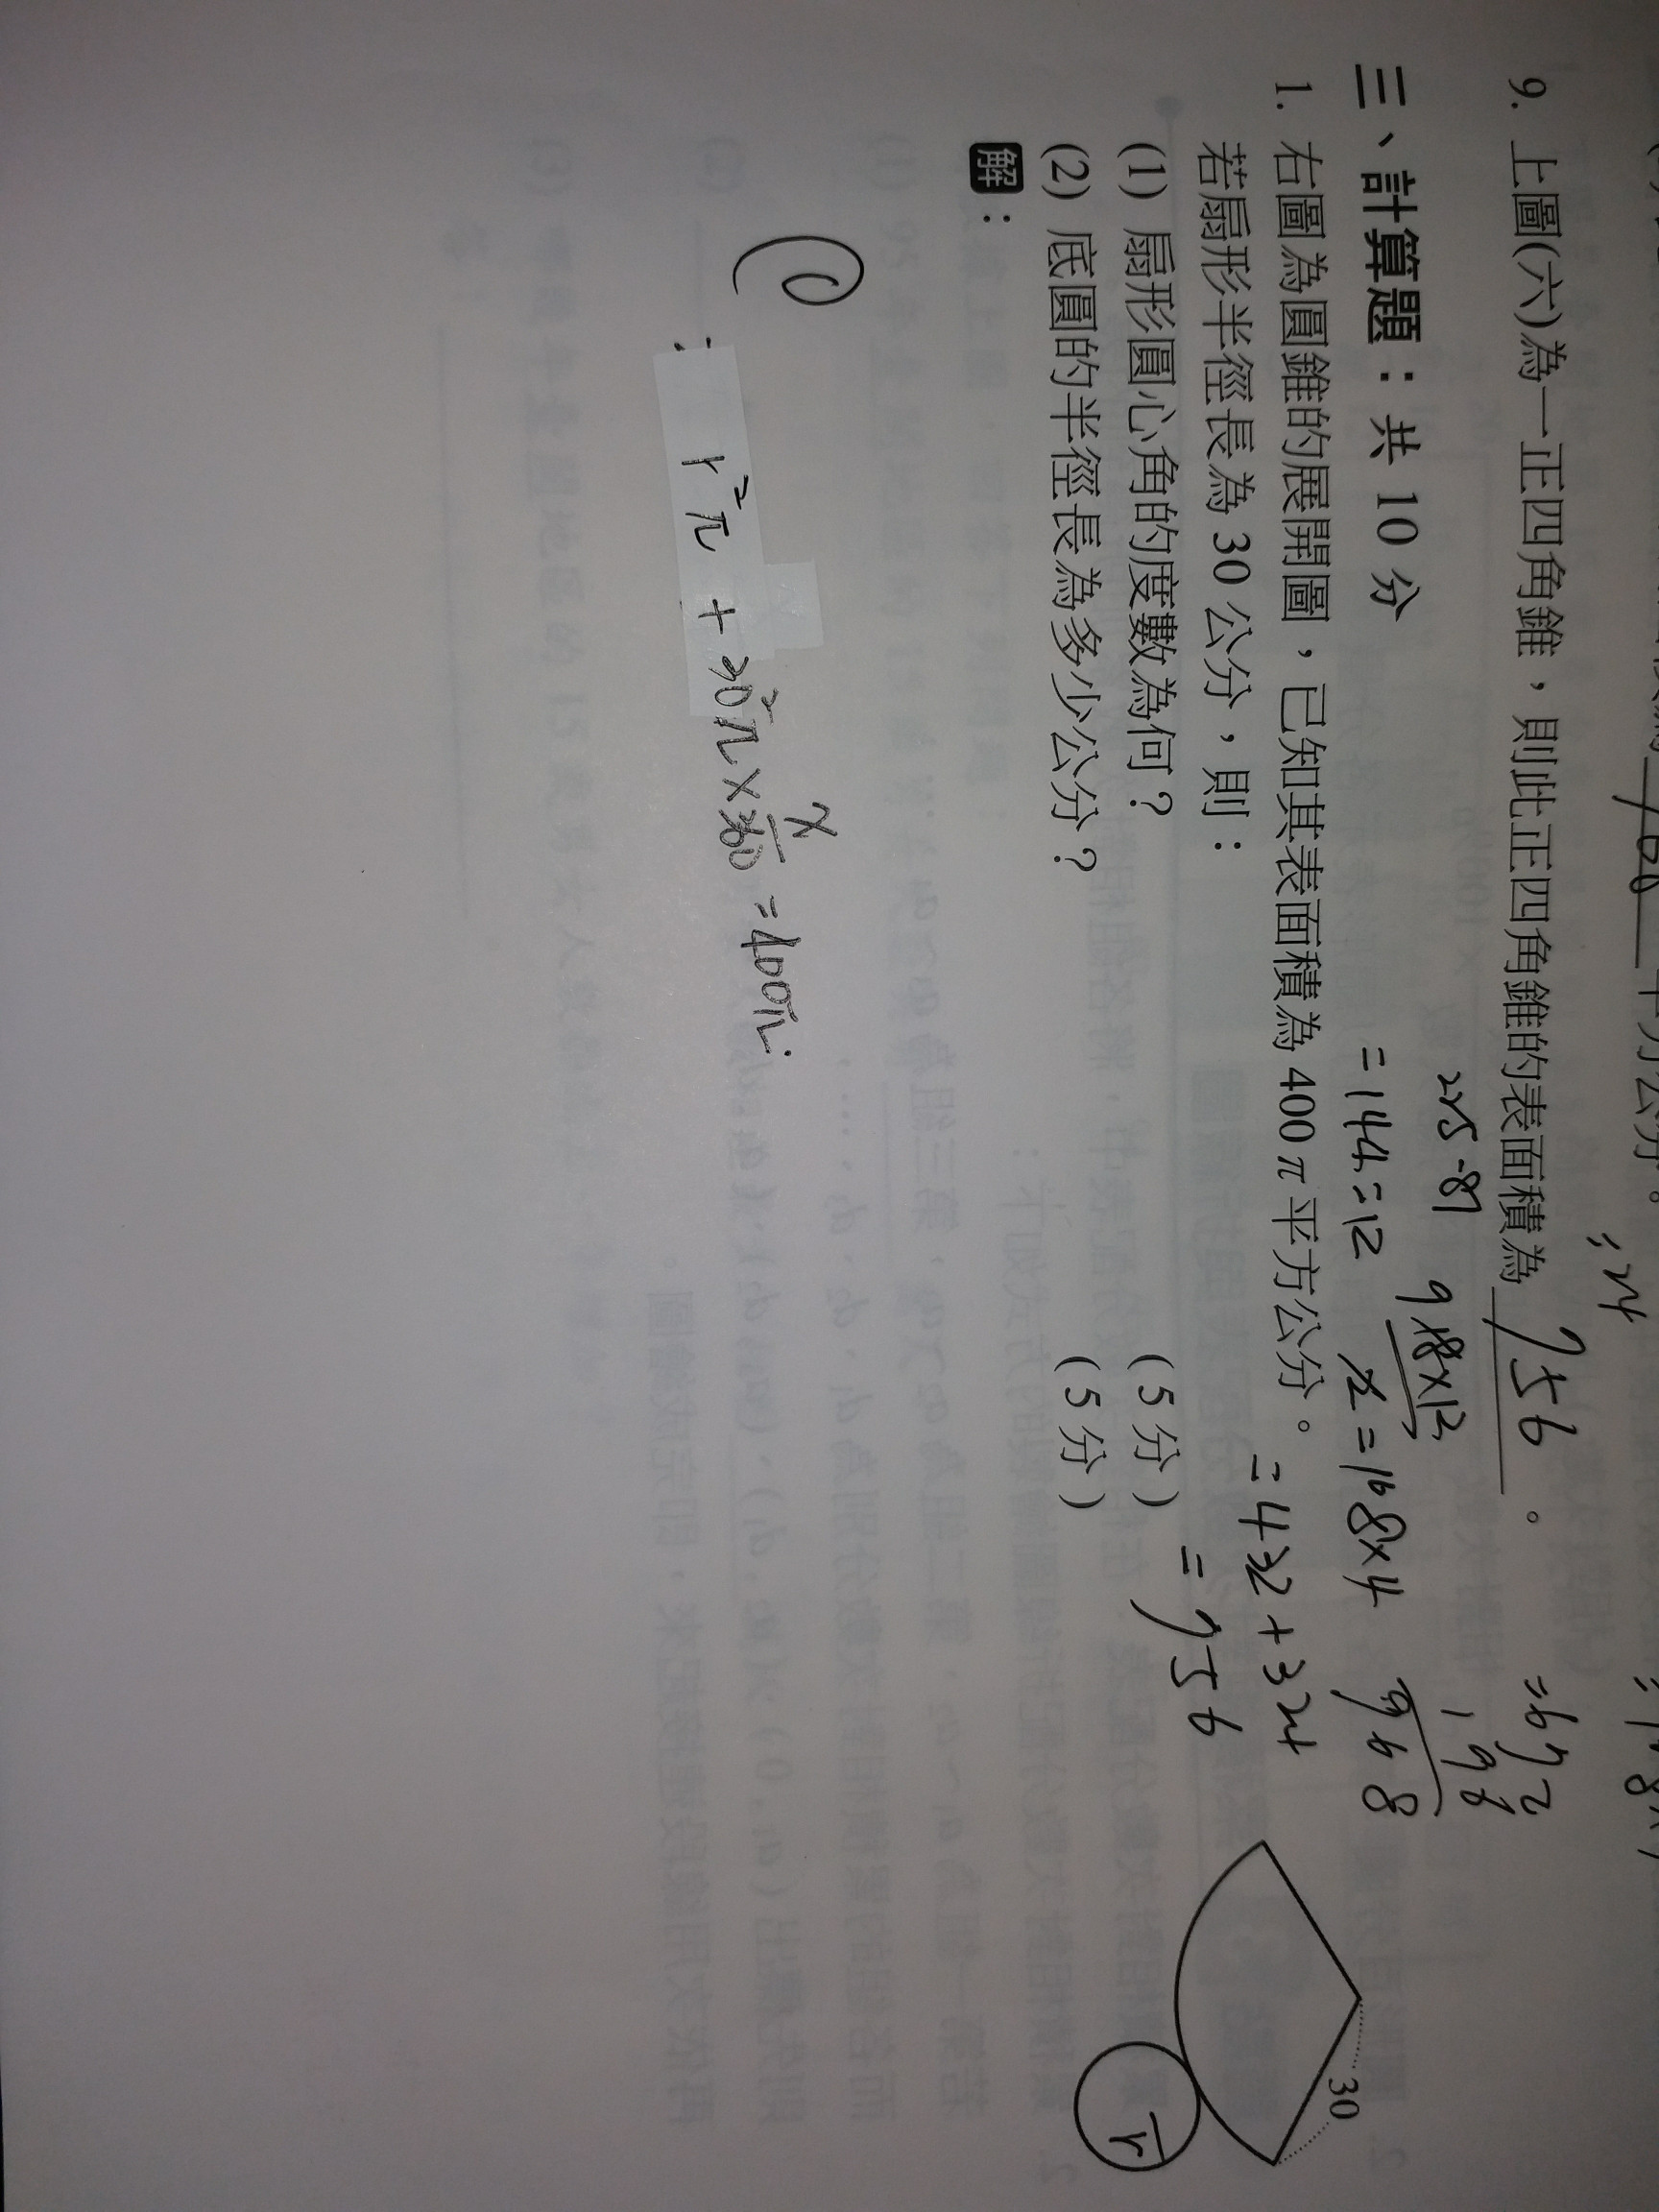 9. 上圖(六)為一正四角錐，則此正四角錐的表面積為 756 。
225-81
=144=12
9 18×12
x=108×4
=432+324
=756
三、計算題：共 10 分
1. 右圖為圓錐的展開圖，已知其表面積為 400π 平方公分。
若扇形半徑長為 30 公分，則：
(1) 扇形圓心角的度數為何？ (5 分)
(2) 底圓的半徑長為多少公分？ (5 分)
解：
30
r
r²π + 30²π × x/360 = 400π